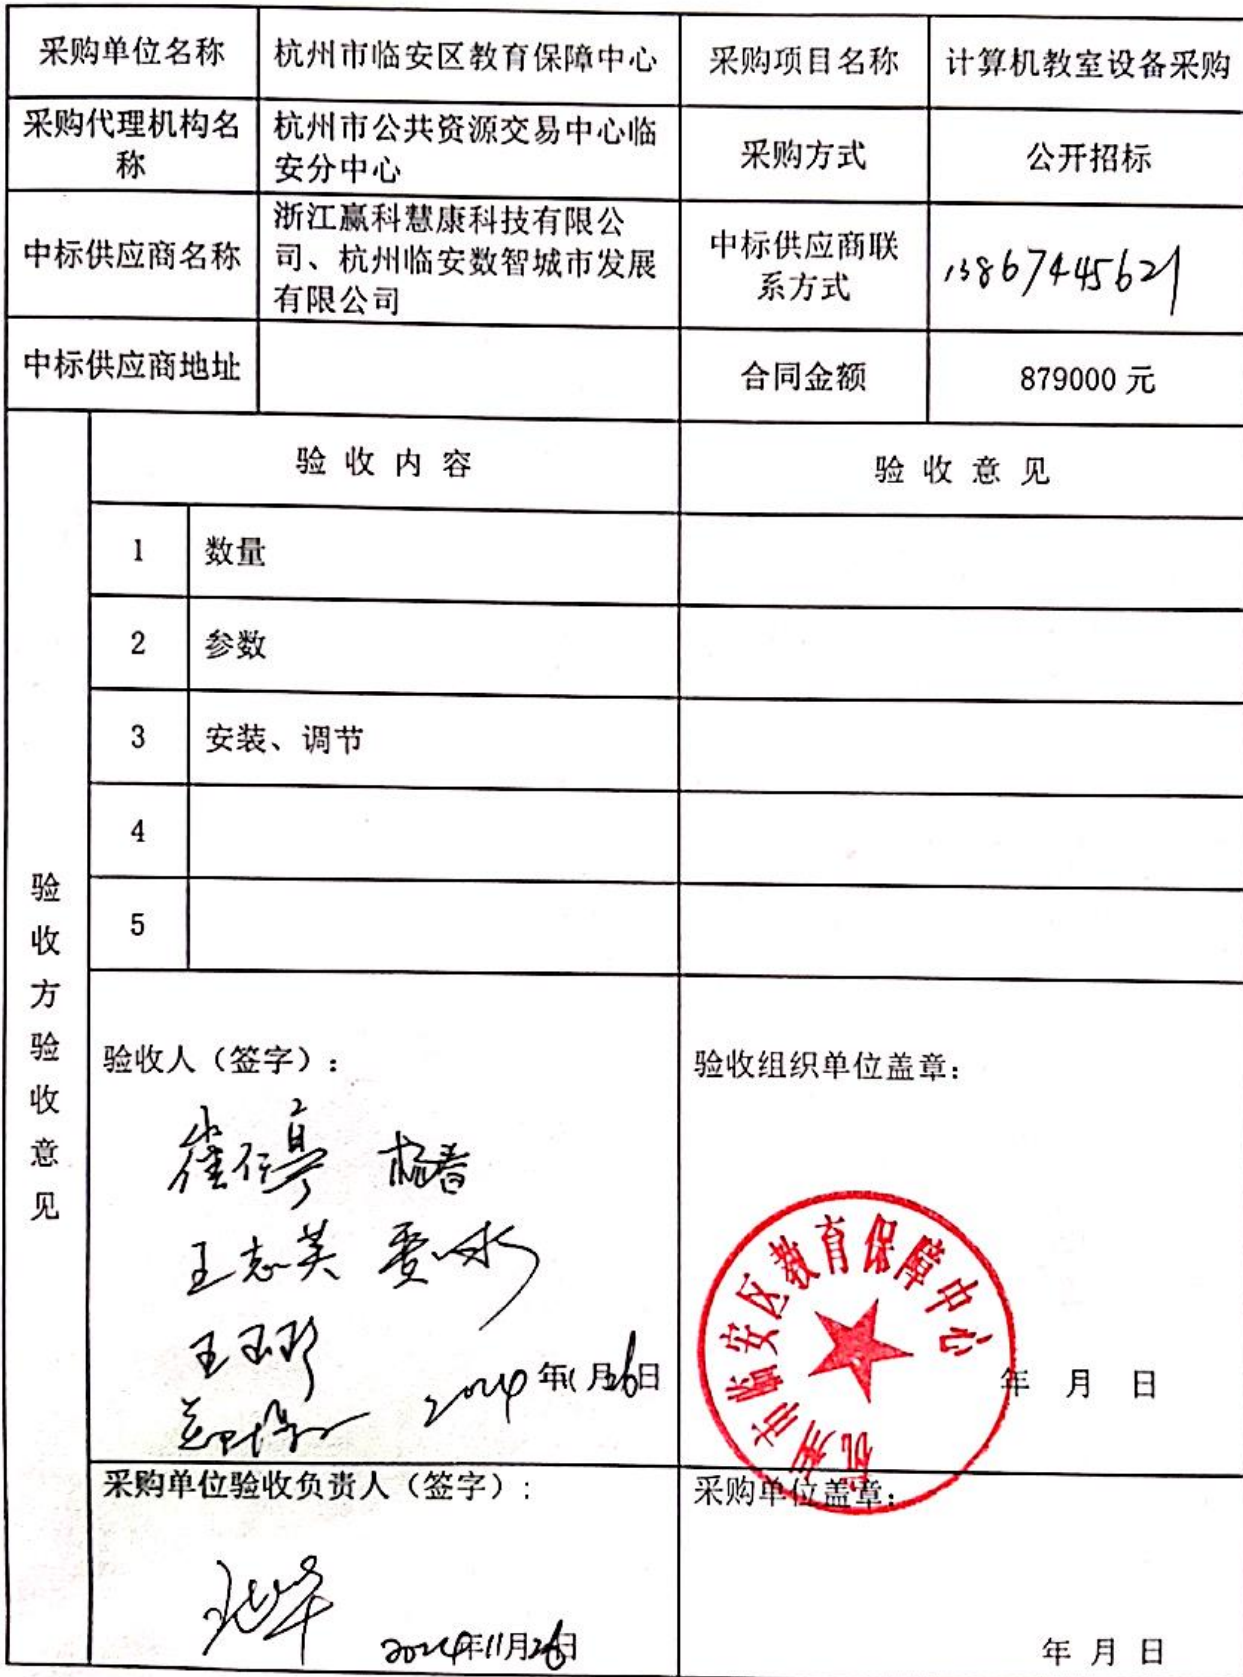 采购单位名称 杭州市临安区教育保障中心 采购项目名称 计算机教室设备采购
采购代理机构名
称
杭州市公共资源交易中心临
安分中心
采购方式 公开招标
中标供应商名称
浙江赢科慧康科技有限公
司、杭州临安数智城市发展
有限公司
中标供应商联
系方式
13867445621
中标供应商地址 合同金额 879000 元
验收方验收意见
验收内容 验收意见
1 数量
2 参数
3 安装、调节
4
5
验收人（签字）：
杨春
王志英
2024年11月26日
验收组织单位盖章：
杭州市临安区教育保障中心
年 月 日
采购单位验收负责人（签字）：
2024年11月26日
采购单位盖章：
年 月 日